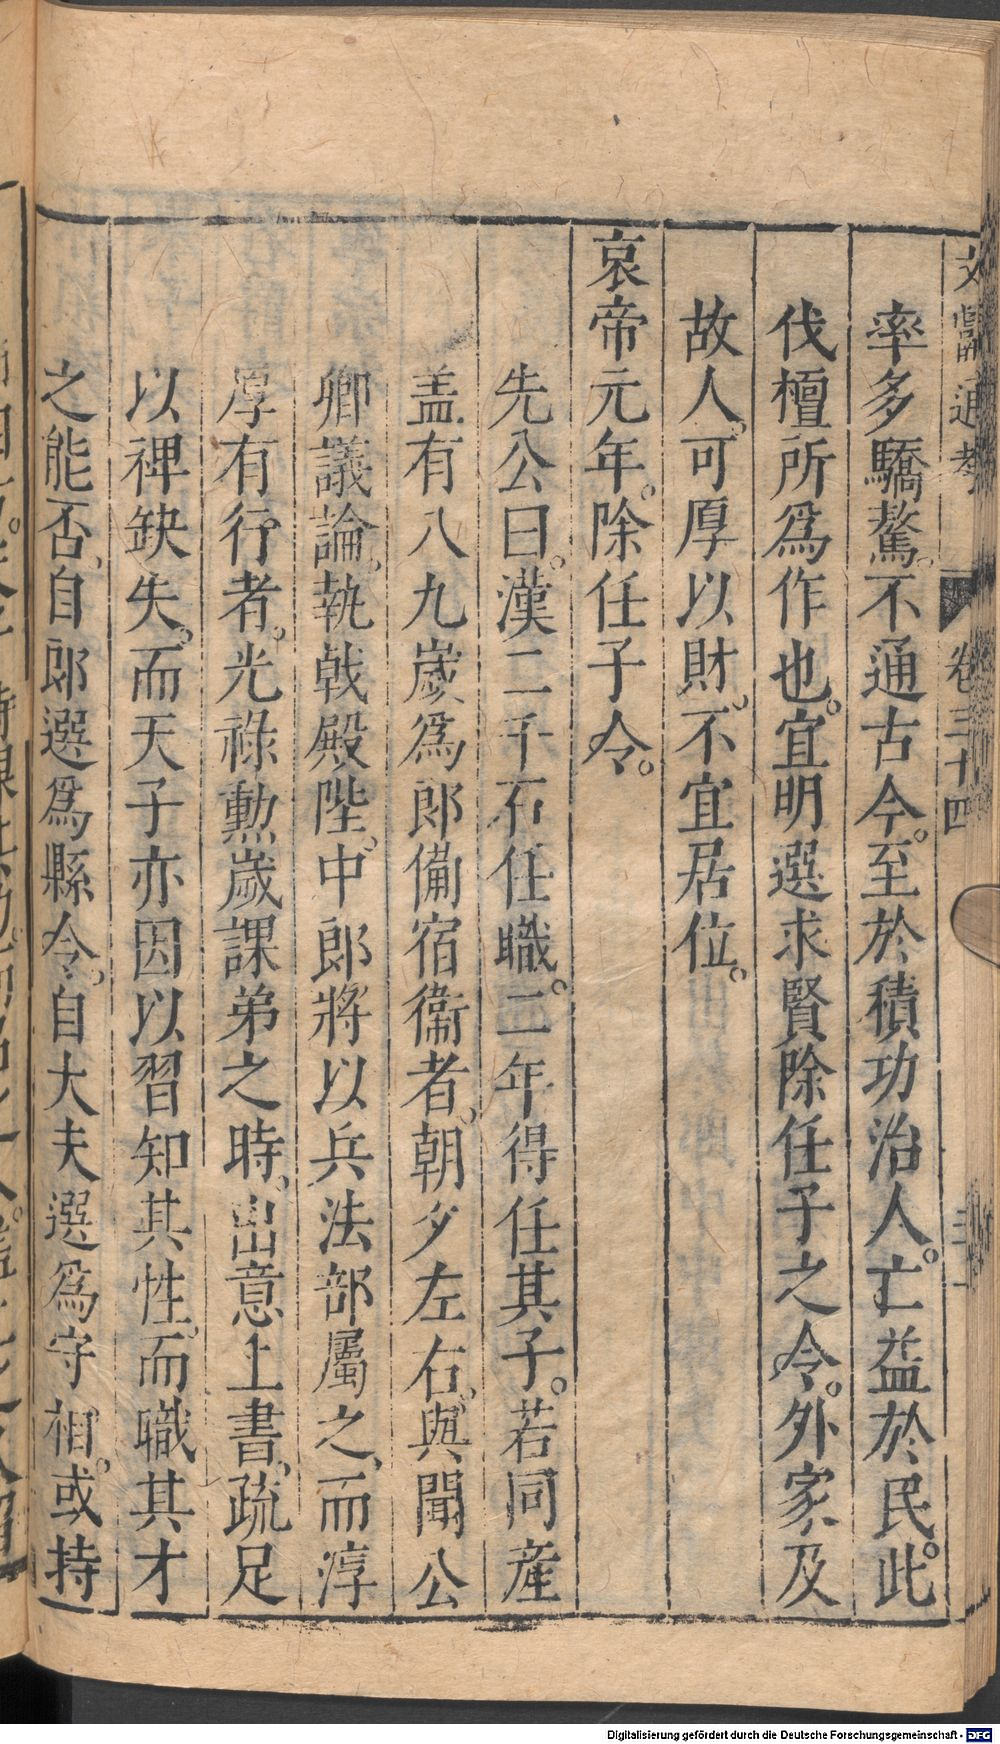 文獻通考 卷三十四
率多驕驁。不通古今。至於積功治人。亡益於民。此
伐檀所爲作也。宜明選求賢除任子之令。外家及
故人、可厚以財、不宜居位。
哀帝元年。除任子令。
先公曰。漢二千石任職。二年得任其子。若同產
盖有八九歲爲郎備宿衞者、朝夕左右、與聞公
卿議論、執戟殿陛、中郎將以兵法部屬之、而淳
厚有行者。光祿勲歲課弟之時、出意上書、疏足
以裨缺失。而天子亦因以習知其性、而職其才
之能否、自郎選爲縣令。自大夫選爲守相。或持
Digitalisierung gefördert durch die Deutsche Forschungsgemeinschaft - DFG